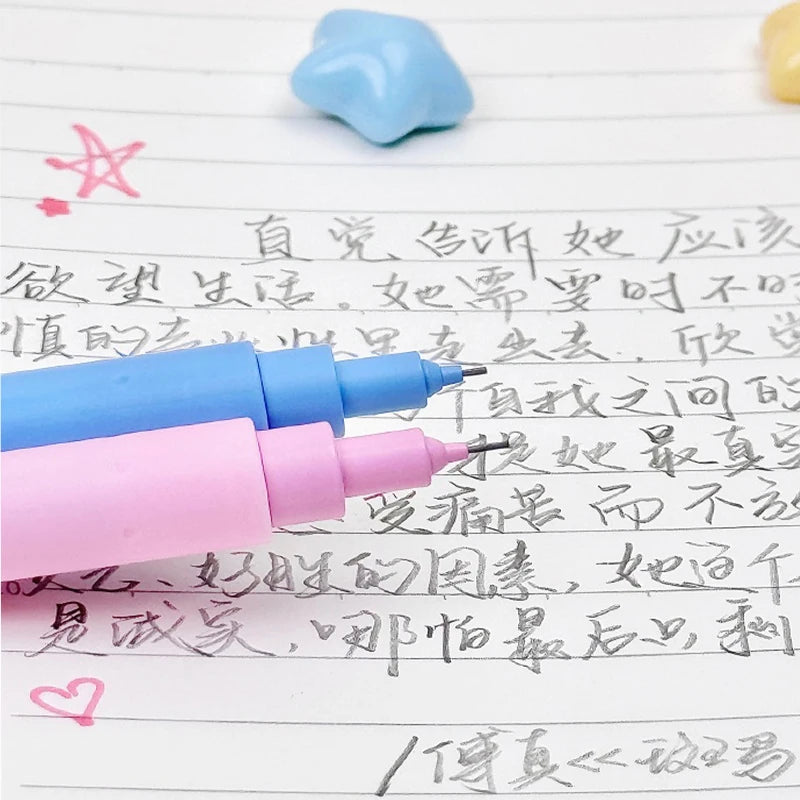 直觉告诉她应该
欲望生活。她需要时不时
慎的去走出去,欣觉
自我之间的
她最真实
受痛苦而不放
、好胜的因素,她这个
是诚实,哪怕最后只剩
/傅真<<斑马